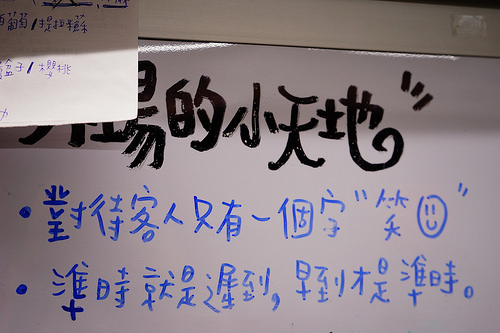 葡萄/提拉米蘇
盒子/櫻桃
場的小天地"
• 對待客人只有一個字"笑☺"
• 準時就是遲到,早到才是準時。